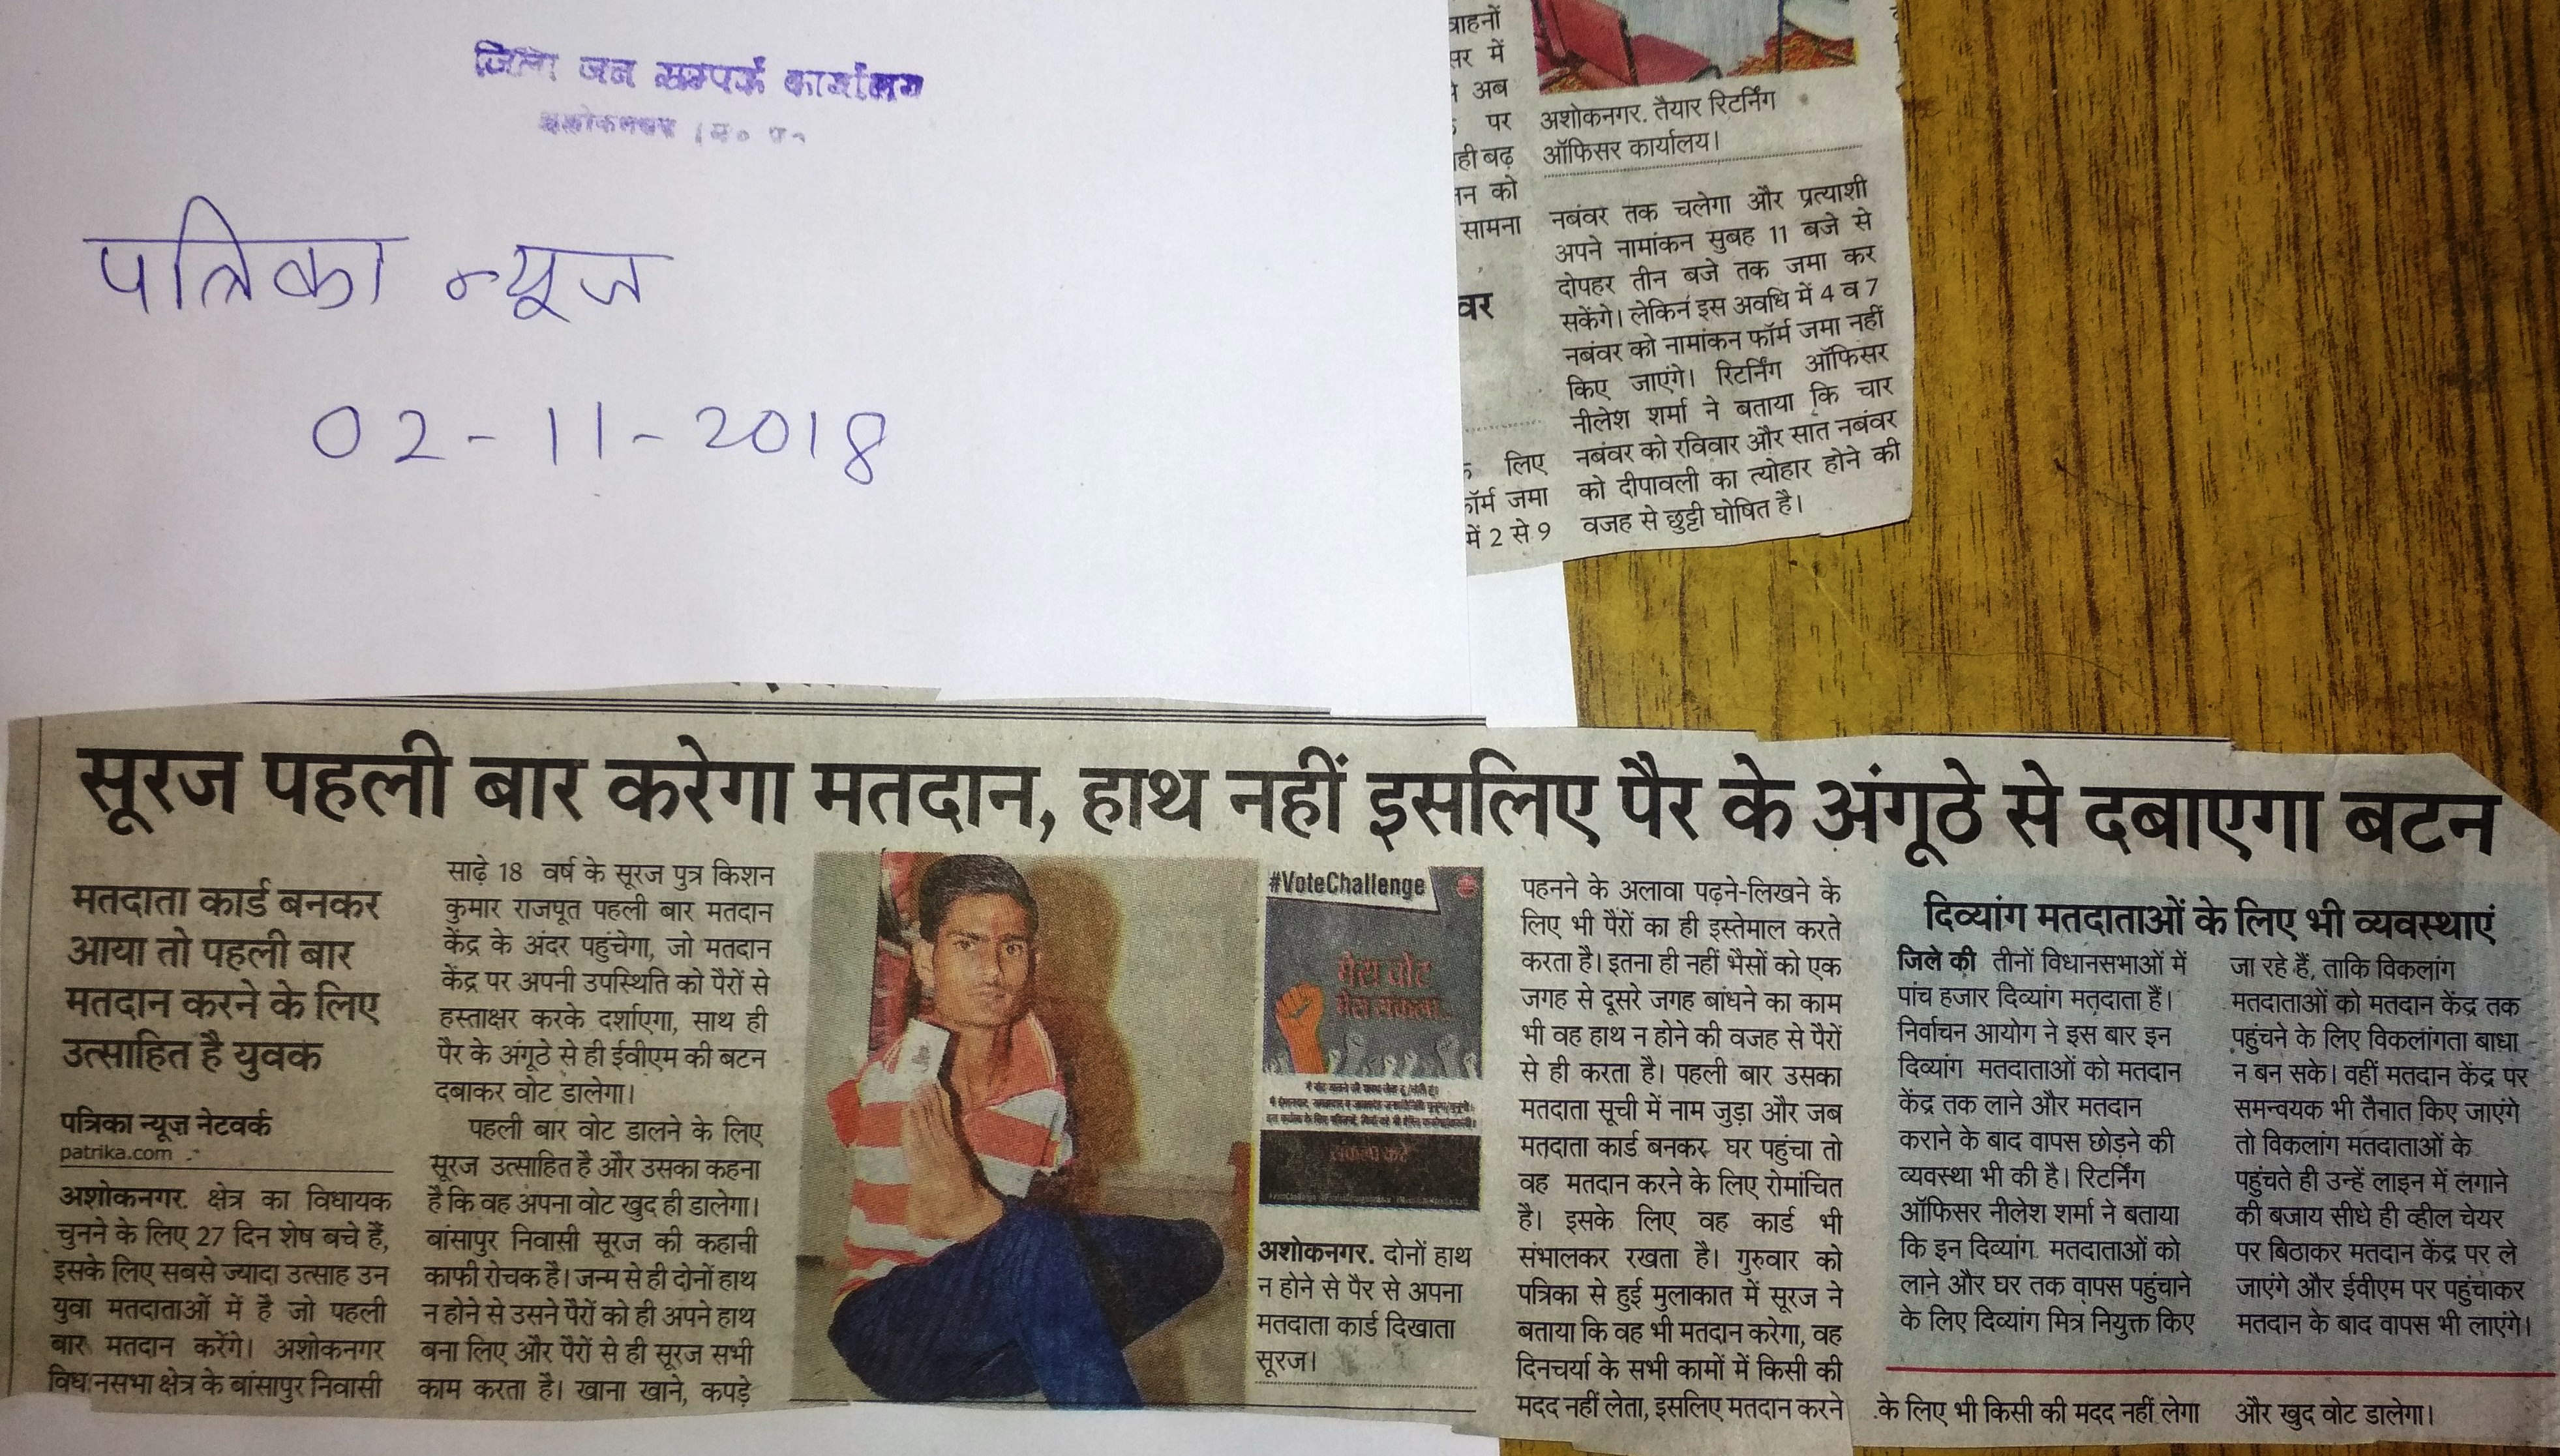 जिला जन सम्पर्क कार्यालय
अशोकनगर (म० प्र०
पत्रिका न्यूज
02-11-2018
वाहनों
सर में
अब
पर
ही बढ़
को
सामना
वर
लिए
फॉर्म जमा
में 2 से 9
अशोकनगर. तैयार रिटर्निंग
ऑफिसर कार्यालय।
नबंवर तक चलेगा और प्रत्याशी
अपने नामांकन सुबह 11 बजे से
दोपहर तीन बजे तक जमा कर
सकेंगे। लेकिन इस अवधि में 4 व 7
नबंवर को नामांकन फॉर्म जमा नहीं
किए जाएंगे। रिटर्निंग ऑफिसर
नीलेश शर्मा ने बताया कि चार
नबंवर को रविवार और सात नबंवर
को दीपावली का त्योहार होने की
वजह से छुट्टी घोषित है।
सूरज पहली बार करेगा मतदान, हाथ नहीं इसलिए पैर के अंगूठे से दबाएगा बटन
मतदाता कार्ड बनकर
आया तो पहली बार
मतदान करने के लिए
उत्साहित है युवक
पत्रिका न्यूज नेटवर्क
patrika.com
अशोकनगर. क्षेत्र का विधायक
चुनने के लिए 27 दिन शेष बचे हैं,
इसके लिए सबसे ज्यादा उत्साह उन
युवा मतदाताओं में है जो पहली
बार मतदान करेंगे। अशोकनगर
विधानसभा क्षेत्र के बांसापुर निवासी
साढ़े 18 वर्ष के सूरज पुत्र किशन
कुमार राजपूत पहली बार मतदान
केंद्र के अंदर पहुंचेगा, जो मतदान
केंद्र पर अपनी उपस्थिति को पैरों से
हस्ताक्षर करके दर्शाएगा, साथ ही
पैर के अंगूठे से ही ईवीएम की बटन
दबाकर वोट डालेगा।
पहली बार वोट डालने के लिए
सूरज उत्साहित है और उसका कहना
है कि वह अपना वोट खुद ही डालेगा।
बांसापुर निवासी सूरज की कहानी
काफी रोचक है। जन्म से ही दोनों हाथ
न होने से उसने पैरों को ही अपने हाथ
बना लिए और पैरों से ही सूरज सभी
काम करता है। खाना खाने, कपड़े
#VoteChallenge
मेरा वोट
मेरा संकल्प..
संकल्प करें
अशोकनगर. दोनों हाथ
न होने से पैर से अपना
मतदाता कार्ड दिखाता
सूरज।
पहनने के अलावा पढ़ने-लिखने के
लिए भी पैरों का ही इस्तेमाल करते
करता है। इतना ही नहीं भैसों को एक
जगह से दूसरे जगह बांधने का काम
भी वह हाथ न होने की वजह से पैरों
से ही करता है। पहली बार उसका
मतदाता सूची में नाम जुड़ा और जब
मतदाता कार्ड बनकर घर पहुंचा तो
वह मतदान करने के लिए रोमांचित
है। इसके लिए वह कार्ड भी
संभालकर रखता है। गुरुवार को
पत्रिका से हुई मुलाकात में सूरज ने
बताया कि वह भी मतदान करेगा, वह
दिनचर्या के सभी कामों में किसी की
मदद नहीं लेता, इसलिए मतदान करने
के लिए भी किसी की मदद नहीं लेगा
और खुद वोट डालेगा।
दिव्यांग मतदाताओं के लिए भी व्यवस्थाएं
जिले की तीनों विधानसभाओं में
पांच हजार दिव्यांग मतदाता हैं।
निर्वाचन आयोग ने इस बार इन
दिव्यांग मतदाताओं को मतदान
केंद्र तक लाने और मतदान
कराने के बाद वापस छोड़ने की
व्यवस्था भी की है। रिटर्निंग
ऑफिसर नीलेश शर्मा ने बताया
कि इन दिव्यांग मतदाताओं को
लाने और घर तक वापस पहुंचाने
के लिए दिव्यांग मित्र नियुक्त किए
जा रहे हैं, ताकि विकलांग
मतदाताओं को मतदान केंद्र तक
पहुंचने के लिए विकलांगता बाधा
न बन सके। वहीं मतदान केंद्र पर
समन्वयक भी तैनात किए जाएंगे
तो विकलांग मतदाताओं के
पहुंचते ही उन्हें लाइन में लगाने
की बजाय सीधे ही व्हील चेयर
पर बिठाकर मतदान केंद्र पर ले
जाएंगे और ईवीएम पर पहुंचाकर
मतदान के बाद वापस भी लाएंगे।